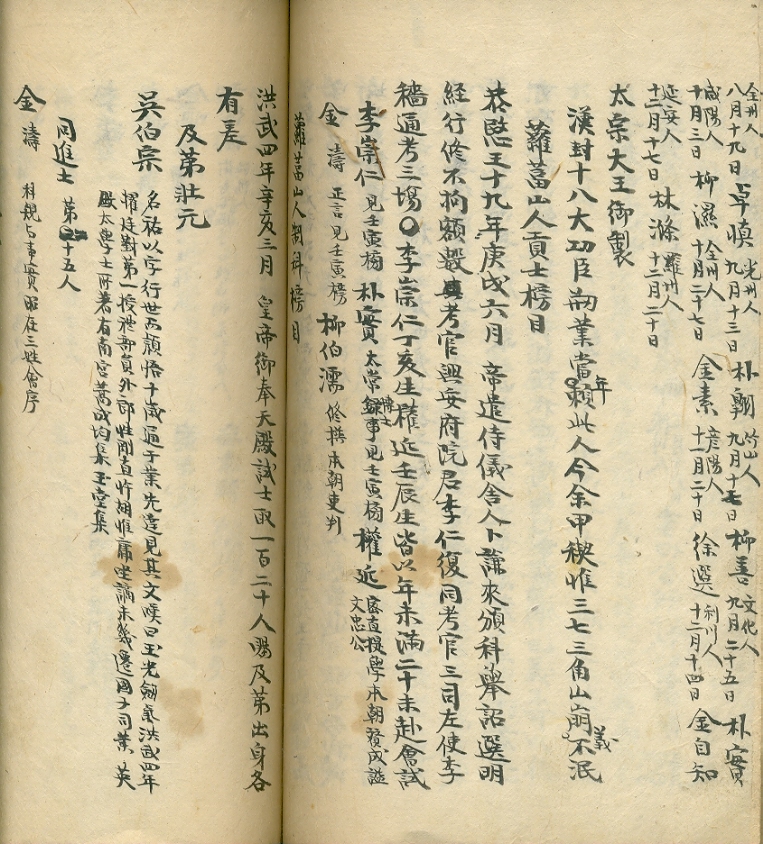 全州人
八月十九日 卓愼 光州人 九月十三日 朴翶 竹山人 九月十七日 柳善 文化人 九月二十五日 朴實
咸陽人
十月三日 柳濕 全州人 十月二十七日 金素 彦陽人 十一月二十日 徐選 利川人 十二月十四日 金自知
延安人
十二月十七日 林滌 羅州人 十二月二十日
太宗大王御製
漢封十八大功臣當年兩業賴此人今余甲稧惟三七三角山崩義不泯
蘿葍山人貢士榜目
恭愍王十九年庚戌六月 帝遣侍儀舍人卜謙來頒科擧詔選明
經行修不拘額數與考官興安府院君李仁復同考官三司左使李
穡通考三場○李崇仁丁亥生權近壬辰生皆以年未滿二十未赴會試
李崇仁 見壬寅榜 朴實 太常博士 錄事見壬寅榜 權近 密直提學本朝贊成謚文忠公
金濤 正言見壬寅榜 柳伯濡 修撰本朝吏判
蘿葍山人制科榜目
洪武四年辛亥三月 皇帝御奉天殿試士取一百二十人賜及第出身各
有差
及第壯元
吳伯宗 名祐以字行世 穎悟十歲通于業先達見其文嘆曰玉光劒氣洪武四年
擢廷對第一授禮部員外郞性剛直忤胡惟庸坐謫未幾遷國子司業 英
殿太學士所著有南宮藁成均集玉堂集
同進士 第 十五人
金濤 科規与事實 在三姓會序